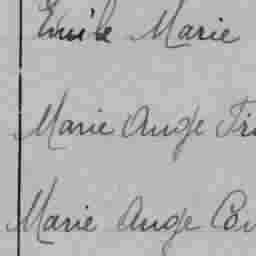 Emile Marie
Marie Ange
Marie Ange